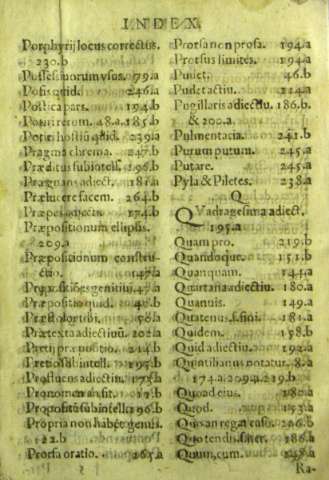 INDEX.
Porphyrij locus correctus.
230.b
Possessiuorum vsus. 79.a
Potis quid. 246.a
Postica pars. 194.b
Potiri rerum. 48.a. 185.b
Potiri hostiū quid. 239.a
Pragma chrema. 247.b
Præditus subintell. 196.b
Prægnans adiect. 181.a
Prælucere facem. 264.b
Præpes adiect. 174.b
Præpositionum elipsis.
209.a
Præpositionum constru-
ctio. 147.a
genitiu. 47.a
Præpositio quid. 46.b
158.b
Prætexta adiectiuū. 202.a
Pretij præpositio. 214.b
Pretio subintell. 195.b
Profluens adiectiu. 175.a
Pronomen an sit. 17.b
subintell. 196.b
Propria non habēt genus.
122.b
Prorsa oratio. 265.a
Prorsa non prosa. 194.a
Prorsus limites. 194.a
Pudet. 46.b
Pudet actiu. 214.a
Pugillaris adiectiū. 186.b.
& 200.a.
Pulmentaria. 241.b
Purum putum. 245.a
Putare. 245.a
Pyla & Piletes. 238.a
Q
QVadragesima adiect.
195.a
Quam pro. 219.b
Quandoque. 151.b
Quanquam. 144.a
Quartana adiectiu. 180.a
Quamuis. 149.a
Quatenus, 181.a
Quidem. 158.b
Quid adiectiu. 192.a
Quintilianus notatur. 8.a
174.a. 209.a. 219.b.
Quoad eius. 180.a
Quod. 153.a
casus. 206.b
Quotendis, siter. 186.b
Quum, cum. 148.a
Ra-